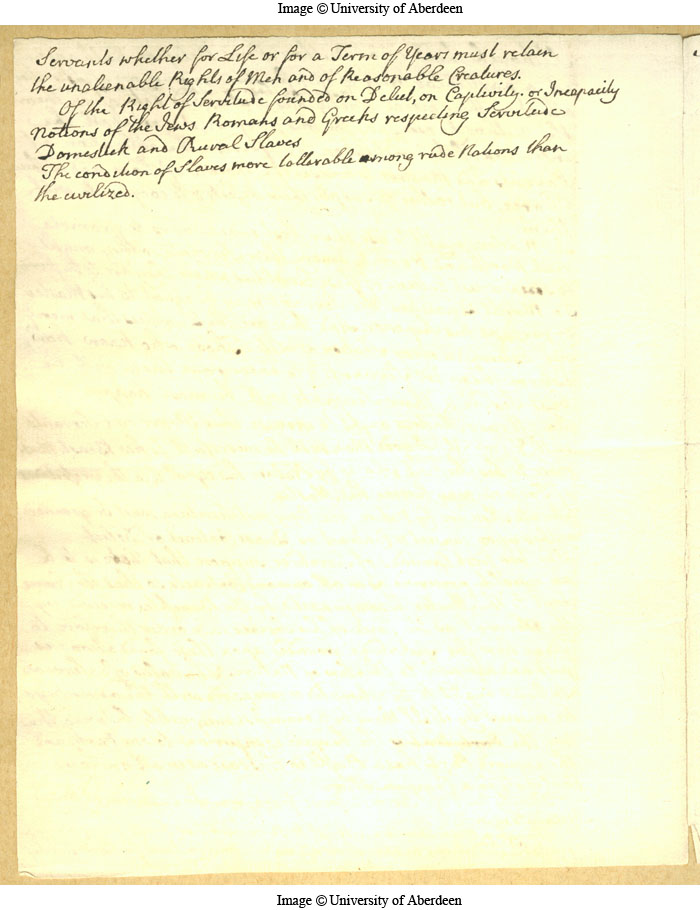 Image © University of Aberdeen
Servants whether for Life or for a Term of Years must retain
the unalienable Rights of Men and of Reasonable Creatures.
Of the Right of Servitude founded on Debt, on Captivity. or Incapacity
Notions of the Jews Romans and Greeks respecting Servitude
Domestick and Rural Slaves
The condition of Slaves more tollerable among rude Nations than
the civilized.
Image © University of Aberdeen